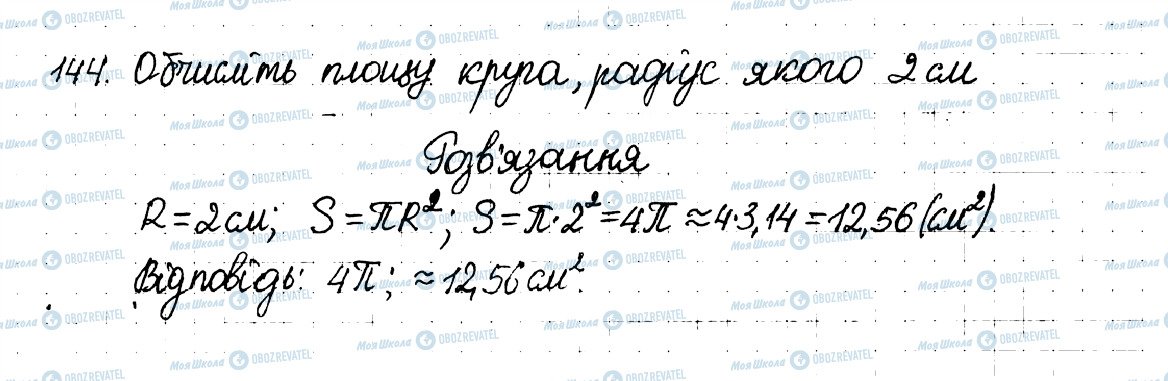 144. Обчисліть площу круга, радіус якого 2 см
Розв'язання
R = 2 см; S = πR²; S = π·2² = 4π ≈ 4·3,14 = 12,56 (см²).
Відповідь: 4π; ≈ 12,56 см².